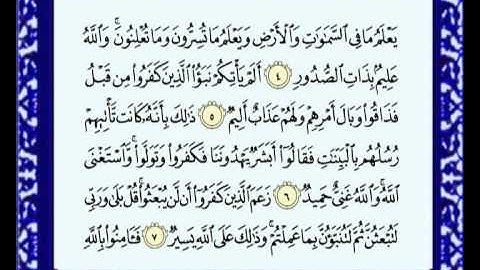 يَعْلَمُ مَا فِي ٱلسَّمَٰوَٰتِ وَٱلْأَرْضِ وَيَعْلَمُ مَا تُسِرُّونَ وَمَا تُعْلِنُونَ ۚ وَٱللَّهُ
عَلِيمٌۢ بِذَاتِ ٱلصُّدُورِ ٤ أَلَمْ يَأْتِكُمْ نَبَؤُا۟ ٱلَّذِينَ كَفَرُوا۟ مِن قَبْلُ
فَذَاقُوا۟ وَبَالَ أَمْرِهِمْ وَلَهُمْ عَذَابٌ أَلِيمٌ ٥ ذَٰلِكَ بِأَنَّهُۥ كَانَت تَّأْتِيهِمْ
رُسُلُهُم بِٱلْبَيِّنَٰتِ فَقَالُوٓا۟ أَبَشَرٌ يَهْدُونَنَا فَكَفَرُوا۟ وَتَوَلَّوا۟ ۚ وَّٱسْتَغْنَى
ٱللَّهُ ۚ وَٱللَّهُ غَنِيٌّ حَمِيدٌ ٦ زَعَمَ ٱلَّذِينَ كَفَرُوٓا۟ أَن لَّن يُبْعَثُوا۟ ۚ قُلْ بَلَىٰ وَرَبِّي
لَتُبْعَثُنَّ ثُمَّ لَتُنَبَّؤُنَّ بِمَا عَمِلْتُمْ ۚ وَذَٰلِكَ عَلَى ٱللَّهِ يَسِيرٌ ٧ فَـَٔامِنُوا۟ بِٱللَّهِ